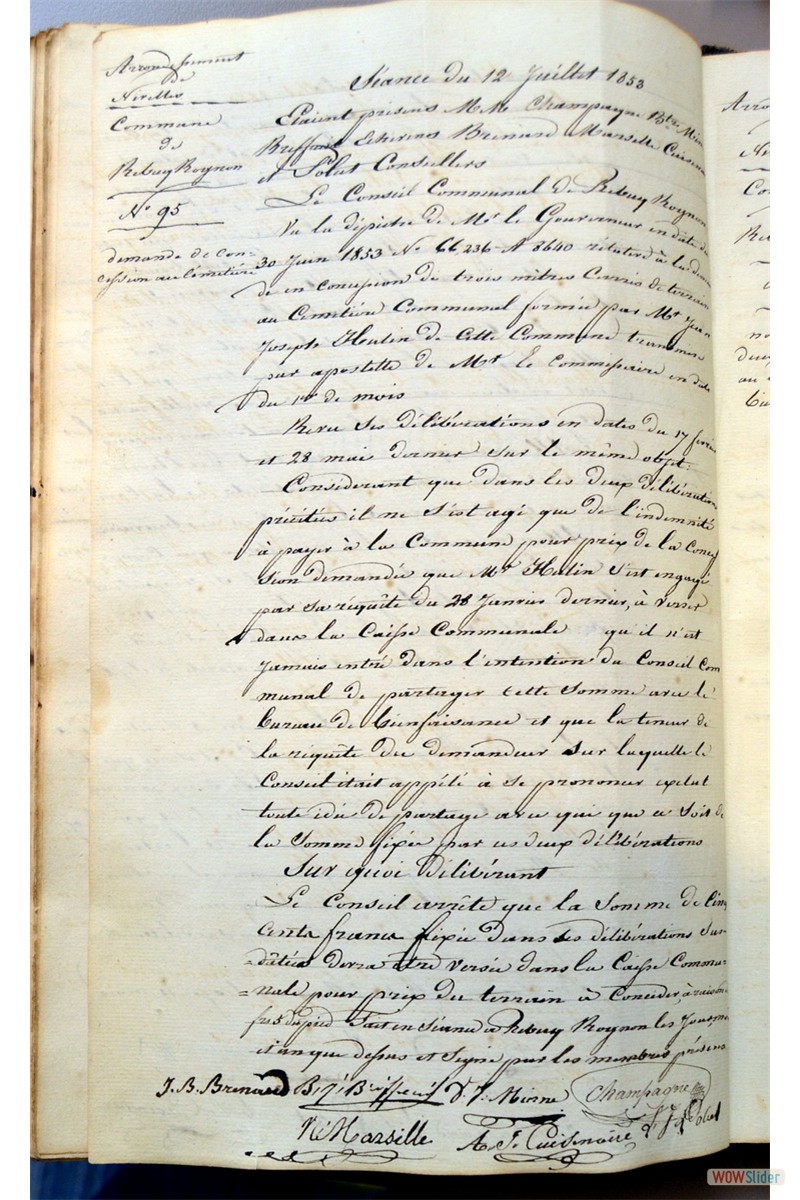 Arrondissement
de
Nivelles
Commune
de
Rebecq Rognon
N° 95
demande de con-
cession au Cemetière
Séance du 12 Juillet 1853
Etaient présens M.M. Champagne Bstre
Echevins Brenard Marsille
et Solat Consellers
Le Conseil Communal de Rebecq Rognon
Vu la dépêche de Mr le Gouverneur en date du
30 Juin 1853 N° 66,236 A 8640 rélative à la
de en concession de trois mètres Carrés de terrain
au Cemetière Communal formée par Mr Jean
Joseph Hulin de Cette Commune transmise
par apostille de Mr le Commissaire en date
du 1er de mois
Revu ses délibérations en dates du 17
et 28 mai dernier sur le même objet:
Considerant que dans les deux délibérations
précitées il ne s'est agi que de l'indemnité
à payer à la Commune pour prix de la Conces
sion demandée que Mr Hulin s'est engagé
par sa réquête du 28 Janvier dernier, à verser
dans la Caisse Communale qu'il n'est
Jamais entré dans l'intention du Conseil Com
munal de partager cette Somme avec le
bureau de bienfaisance et que la teneur de
la réquête du demandeur sur laquelle le
Conseil était appélé à se prononcer exclut
toute idée de partage avec qui que ce Soit de
la Somme fixée par ces deux délibérations
Sur quoi délibérant
Le Conseil arrête que la Somme de Cinq
Cents francs fixée dans ses délibérations Sus
=dâtées devra être versée dans la Caisse Commu=
=nale pour prix du terrain à Conceder, à raison
Fait en Séance à Rebecq Rognon les Jour, mois
et an que dessus et Signé par les membres présens
J. B. Brenard D. J. Miesne Champagne
Marsille A. J. Cuisenaire J. J. Solat
WOWSlider